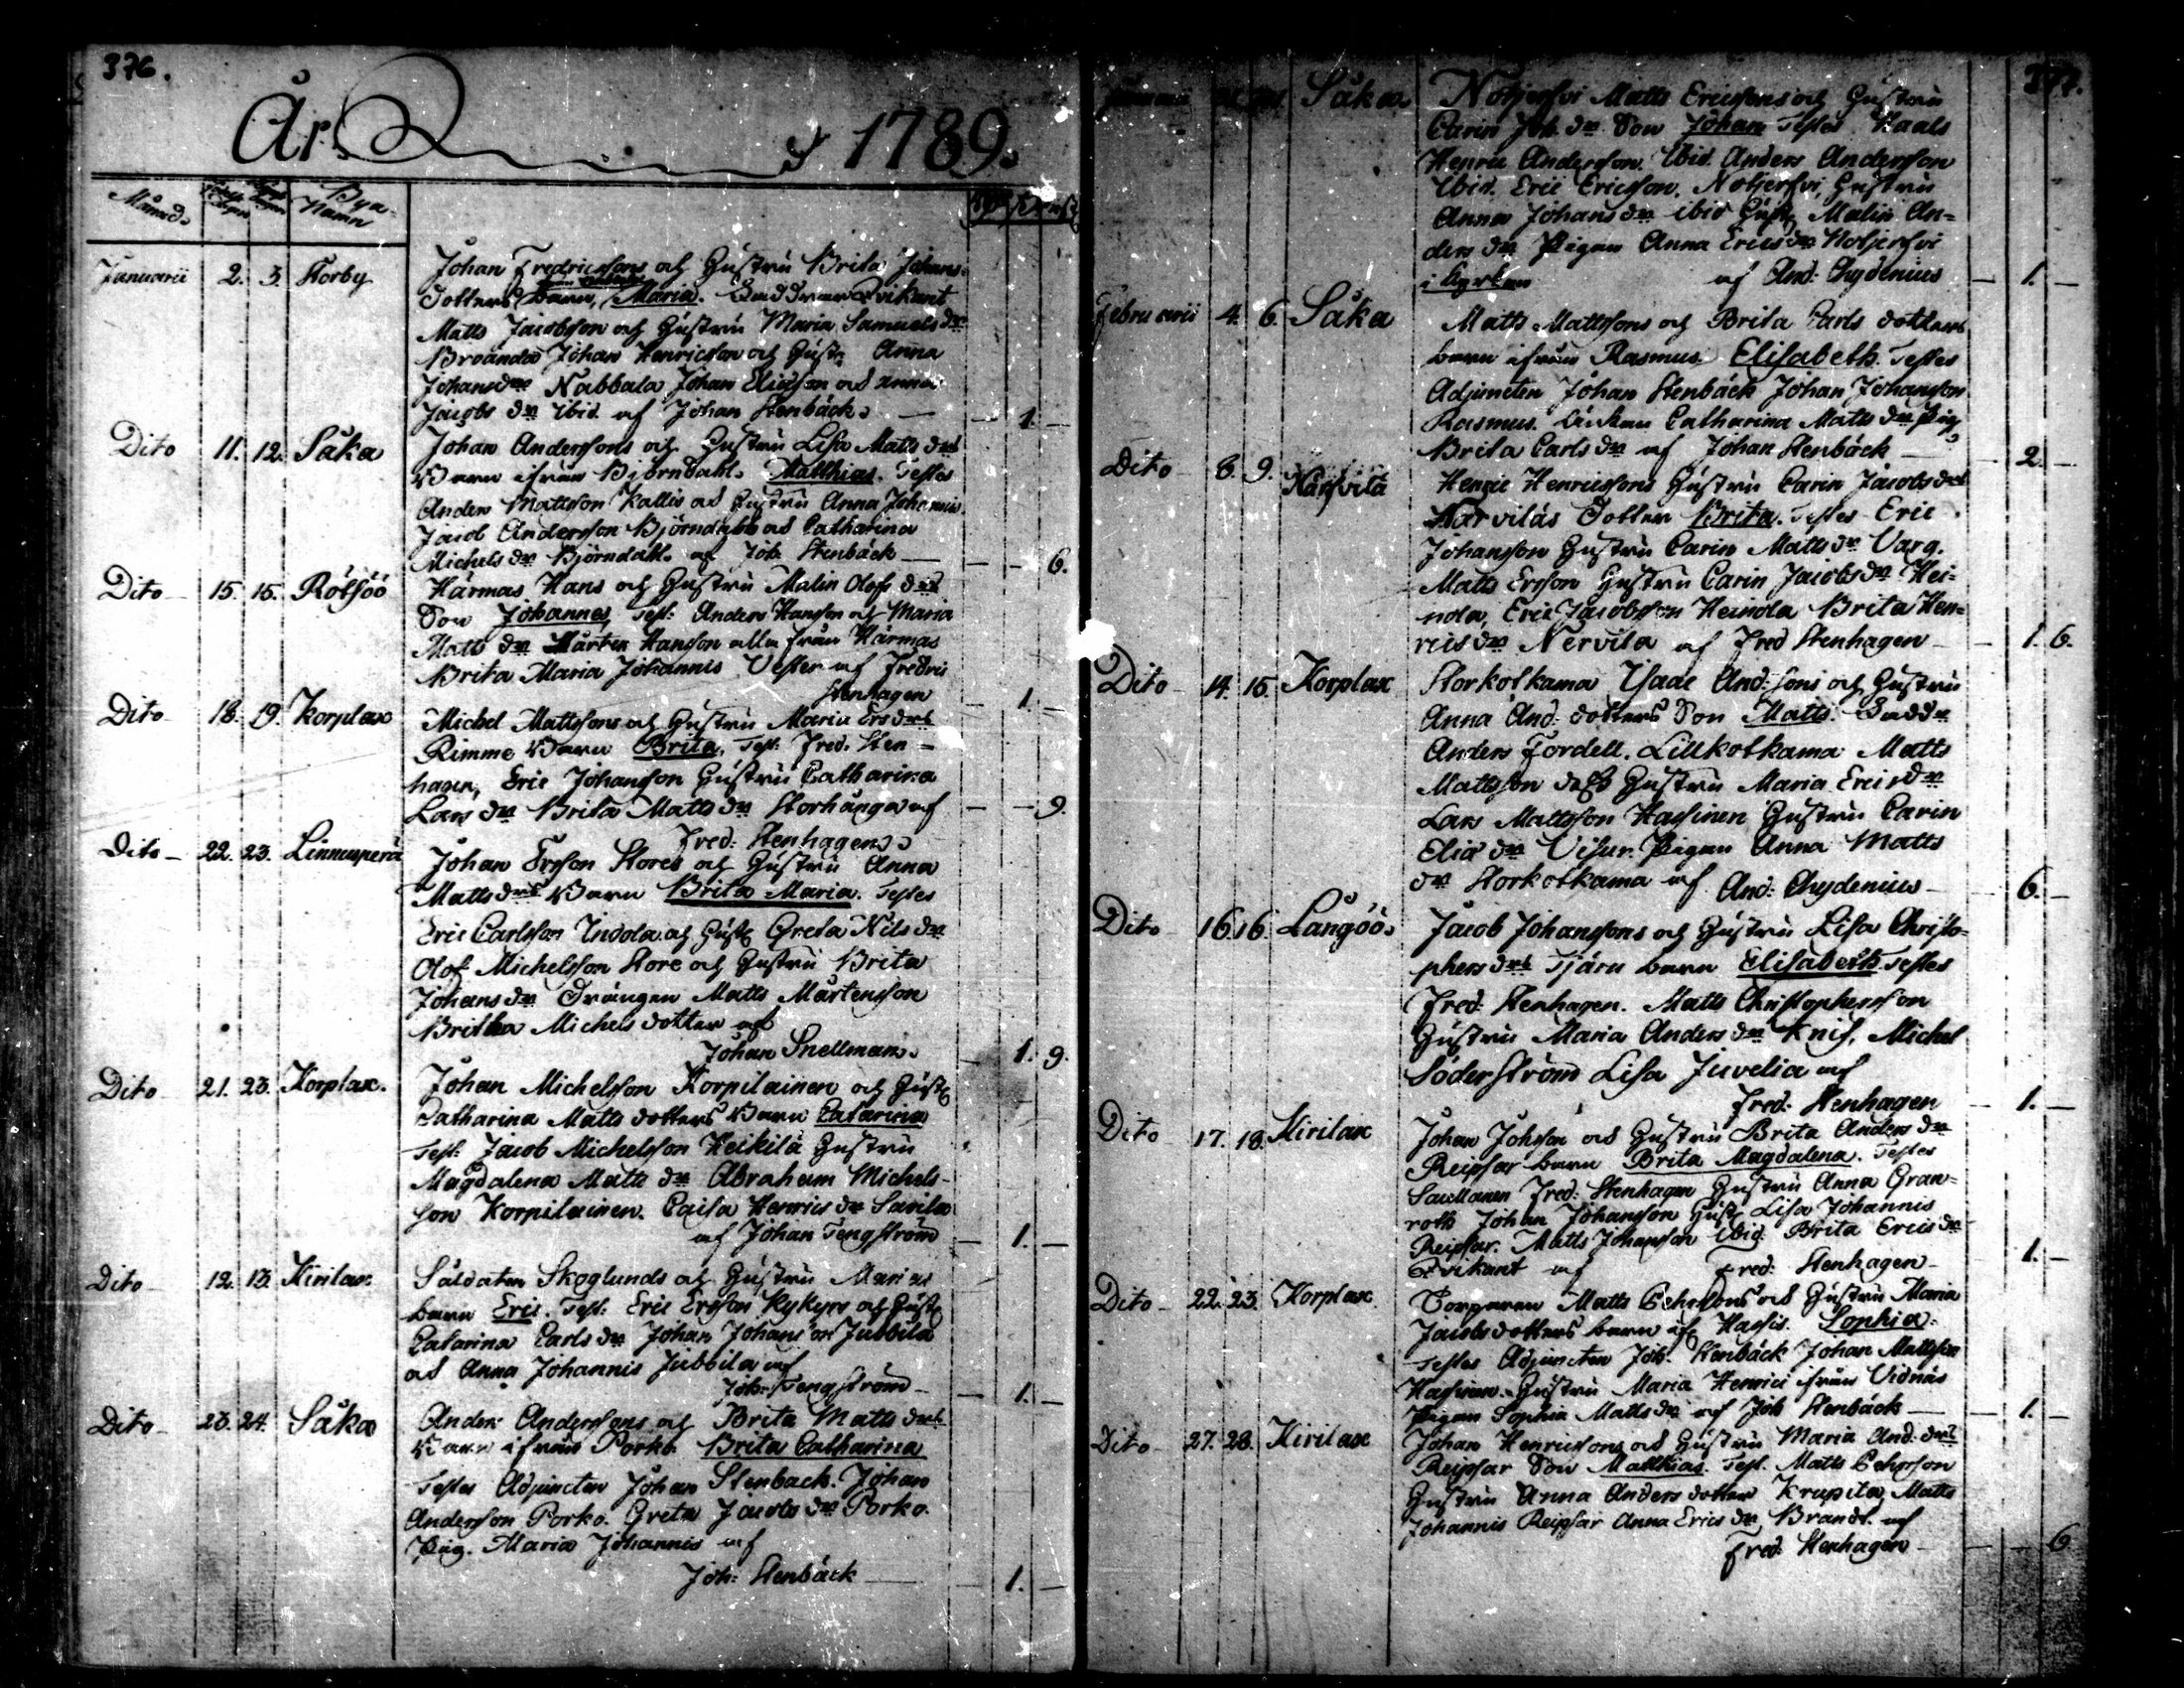 376.
År 1789.
Månad. Bya-Namn
Januarii 2. 3. Storby Johan Fredricssons och Hustru Brita Johans-
dotters Barn, Maria. Faddrar Qvikant
Matts Jacobsson och Hustru Maria Samuels dr
Broända Johan Henricsson och Hustr. Anna
Johans dr Nabbala Johan Eliasson och Anna
Jacobs dr ibid. af Johan Stenbäck. — 1. —
Dito 11. 12. Såka Johan Anderssons och Hustru Lisa Matts drs
Barn ifrån Björndahl. Matthias. Testes
Anders Mattsson Kallis och Hustru Anna Johannis
Jacob Andersson Björndahl och Catharina
Michels dr Björndahl. af Joh. Stenbäck — — 6.
Dito 15. 15. Rötsöö Härmas Hans och Hustru Malin Olofs drs
Son Johannes, Test: Anders Hansson och Maria
Matts dr Mårten Hansson alla från Härmas
Brita Maria Johannis Vester af Fredric
Stenhagen — 1. —
Dito 18. 19. Korplax Michel Mattssons och Hustru Maria Ers drs
Rimme Barn Brita. Test: Fred. Sten=
hagen, Eric Johansson Hustru Catharina
Lars dr Brita Matts dr Storhånga af — — 9.
Fred: Stenhagen.
Dito 22. 23. Linnusperä Johan Ersson Stores och Hustru Anna
Matts drs Barn Brita Maria. Testes
Eric Carlsson Indola och Hustr Greta Nils dr
Olof Michelsson Store och Hustru Brita
Johans dr Drängen Matts Mårtensson
Britha Michels dotter af
Johan Snellman. — 1. 9.
Dito 21. 23. Korplax. Johan Michelsson Korpilainen och Hustr
Catharina Matts dotters Barn Catarina
Test: Jacob Michelsson Heikilä Hustru
Magdalena Matts dr Abraham Michels-
son Korpilainen. Caisa Henrics dr Savila
af Johan Tengström — 1. —
Dito 12. 13. Kirilax Soldaten Skoglunds och Hustru Marias
barn Eric. Test: Eric Ersson Kykyrs och Hustr
Catarina Carls dr Johan Johansson Jubbila
och Anna Johannis Jubbila af
Joh: Tengström — 1. —
Dito 23. 24. Såka Anders Anderssons och Brita Matts drs
Barn ifrån Porko. Brita Catharina
Testes Adjuncten Johan Stenback. Johan
Andersson Porko. Greta Jacobs dr Porko.
Pig. Maria Johannis af
Joh: Stenbäck — 1. —
377.
Såka Notjerfvi Matts Ericssons och Hustru
Carin Joh. drs Son Johan Testes Haals
Henric Andersson. Ibid. Anders Andersson
Ibid. Eric Ericsson. Notjerfvi, Hustru
Anna Johans dr ibid Hustr Malin An=
ders dr Pigan Anna Erics dr Notjerfvi
af And: Chydenius — 1. —
Februarii 4. 6. Såka Matts Mattssons och Brita Carls dotters
barn ifrån Rasmus. Elisabeth. Testes
Adjuncten Johan Stenbäck Johan Johansson
Rasmus. Änkan Catharina Matts dr Pig
Brita Carls dr af Johan Stenbäck — 2. —
Dito 8. 9. Närvilä Henric Henricssons Hustru Carin Jacobs drs
Närviläs Dotter Brita. Testes Eric
Johansson Hustru Carin Matts dr Varg.
Matts Ersson Hustru Carin Jacobs dr Hei=
nola, Eric Jacobsson Heinola Brita Hen=
rics dr Nervila af Fred Stenhagen — 1. 6.
Dito 14. 15. Korplax Storkotkama Isaac And: sons och Hustru
Anna And: dotters Son Matts. Faddr
Anders Fordell. Lillkotkama Matts
Mattsson dess Hustru Maria Erics dr
Lars Mattsson Hassinen Hustru Carin
Elia dr Visur. Pigan Anna Matts
dr Storkotkama af And: Chydenius — 6. —
Dito 16 16. Långöö. Jacob Johanssons och Hustru Lisa Christo=
phers drs Tjäru barn Elisabeth. Testes
Fred: Stenhagen. Matts Christophersson
Hustru Maria Anders dr Knif, Michel
Söderström Lisa Juvelia af
Fred: Stenhagen — 1. —
Dito 17. 18. Kirilax Johan Johsson och Hustru Brita Anders dr
Reipsar barn Brita Magdalena. Testes
Fred: Stenhagen Hustru Anna Gran=
roth Johan Johansson Hustr Lisa Johannis
Reipsar. Matts Johansson Ibid. Brita Erics dr
Qvikant af Fred: Stenhagen — 1. —
Dito 22. 23. Korplax Torparen Matts Pehrssons och Hustru Maria
Jacobs dotters barn af Hassis. Sophia.
Testes Adjuncten Joh. Stenbäck Johan Mattsson
Hassinen. Hustru Maria Henrici ifrån Vidnäs
Pigan Sophia Matts dr af Joh Stenbäck — 1. —
Dito 27. 28. Kirilax Johan Henricssons och Hustru Maria And. drs
Reipsar Son Matthias. Test. Matts Pehrsson
Hustru Anna Anders dotter Krupita, Matts
Johannis Reipsar Anna Erics dr Brandt. af
Fred: Stenhagen — — 6